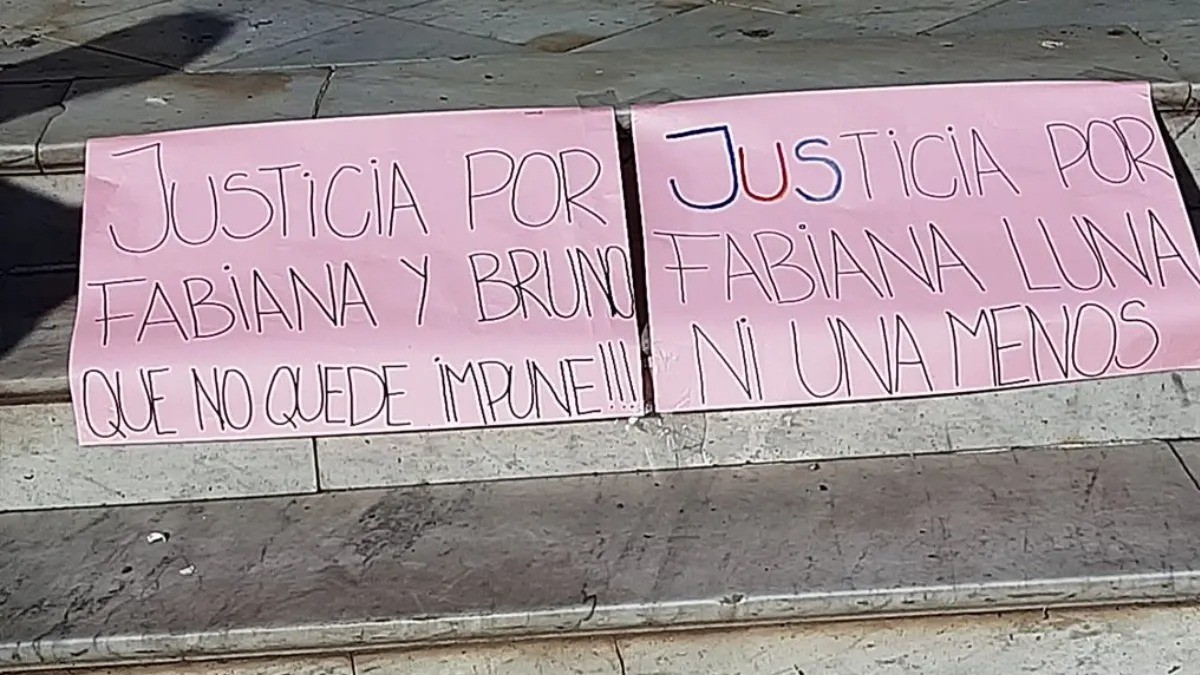 JUSTiCiA POR
FABiANA Y BRUNO
QUE NO QUEDE iMPUNE!!!
JUSTiCiA POR
FABiANA LUNA
Ni UNA MENOS